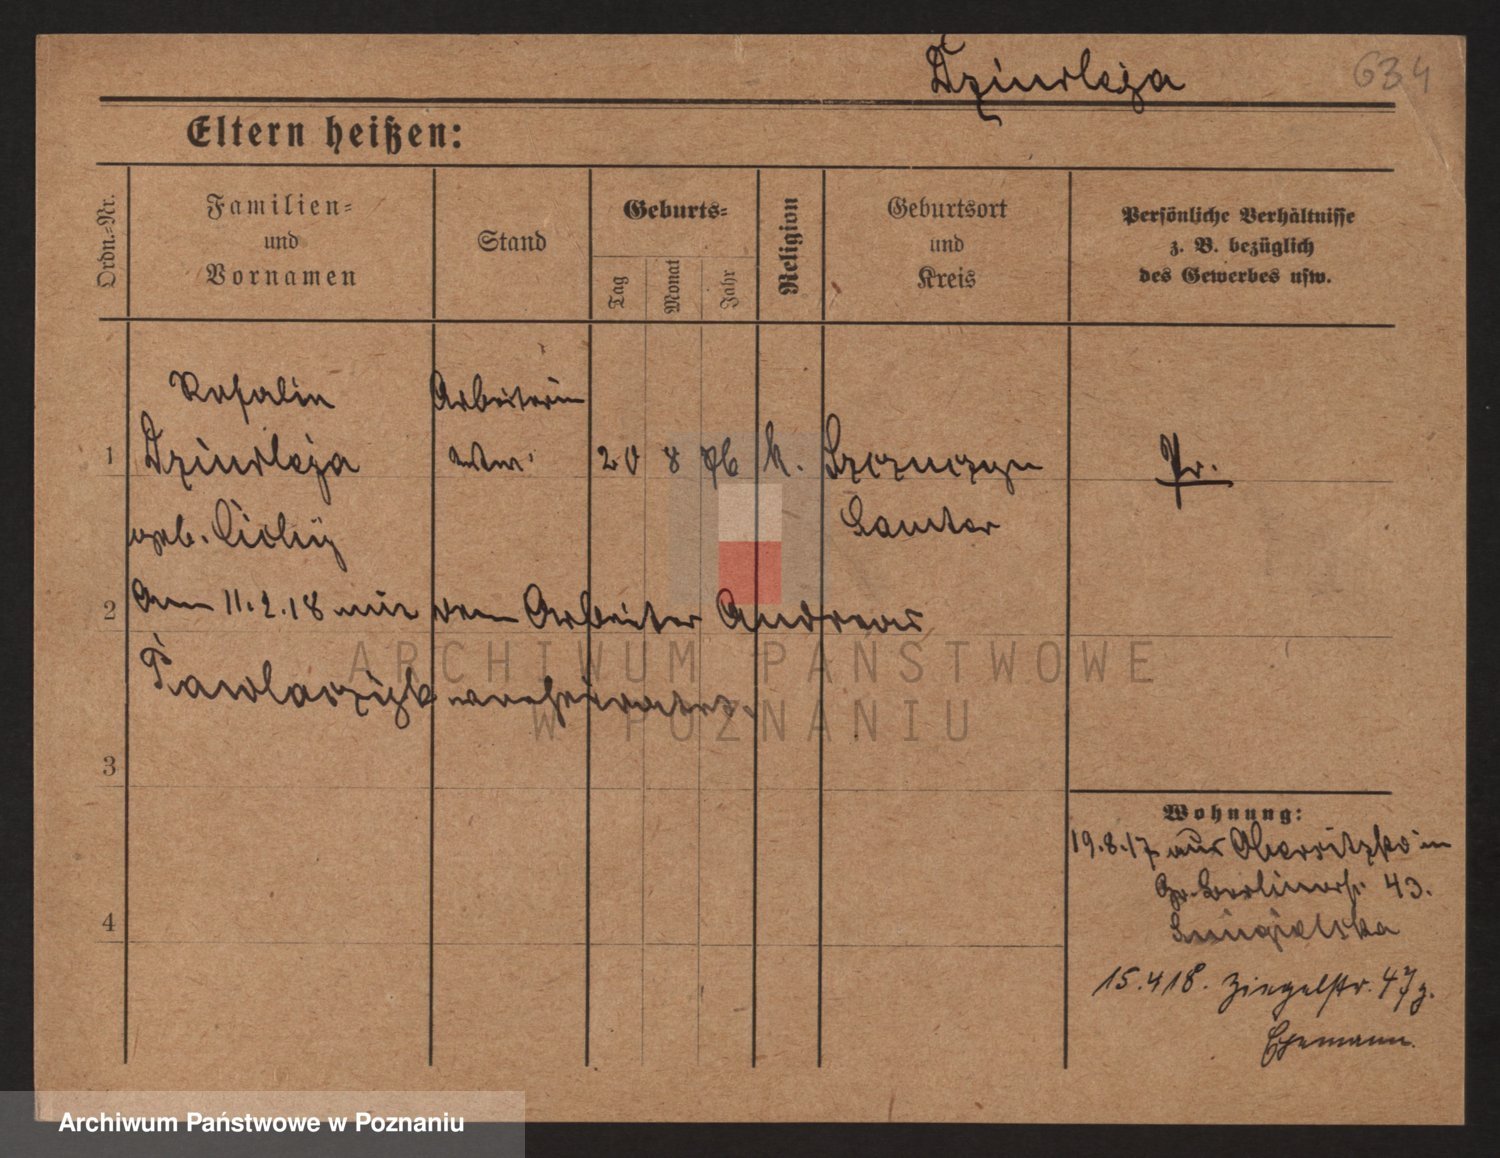 Dziurleja
634
Eltern heißen:
Ordn.-Nr.
Familien-
und
Vornamen
Stand
Geburts-
Tag
Monat
Jahr
Religion
Geburtsort
und
Kreis
Persönliche Verhältnisse
z. B. bezüglich
des Gewerbes usw.
Rosalie Arbeiterin
1 Dziurleja Wwe. 20 8 76 k. Pr.
geb. Samter
2 Am 11.2.18 mit dem Arbeiter Andreas
Pawlaczyk verheiratet.
3
4
Wohnung:
19.8.17 aus Obersitzko in
Gr. Berlinerstr. 43.
15.4 18. Ziegelstr. 47
Ehemann.
ARCHIWUM PAŃSTWOWE
W POZNANIU
Archiwum Państwowe w Poznaniu